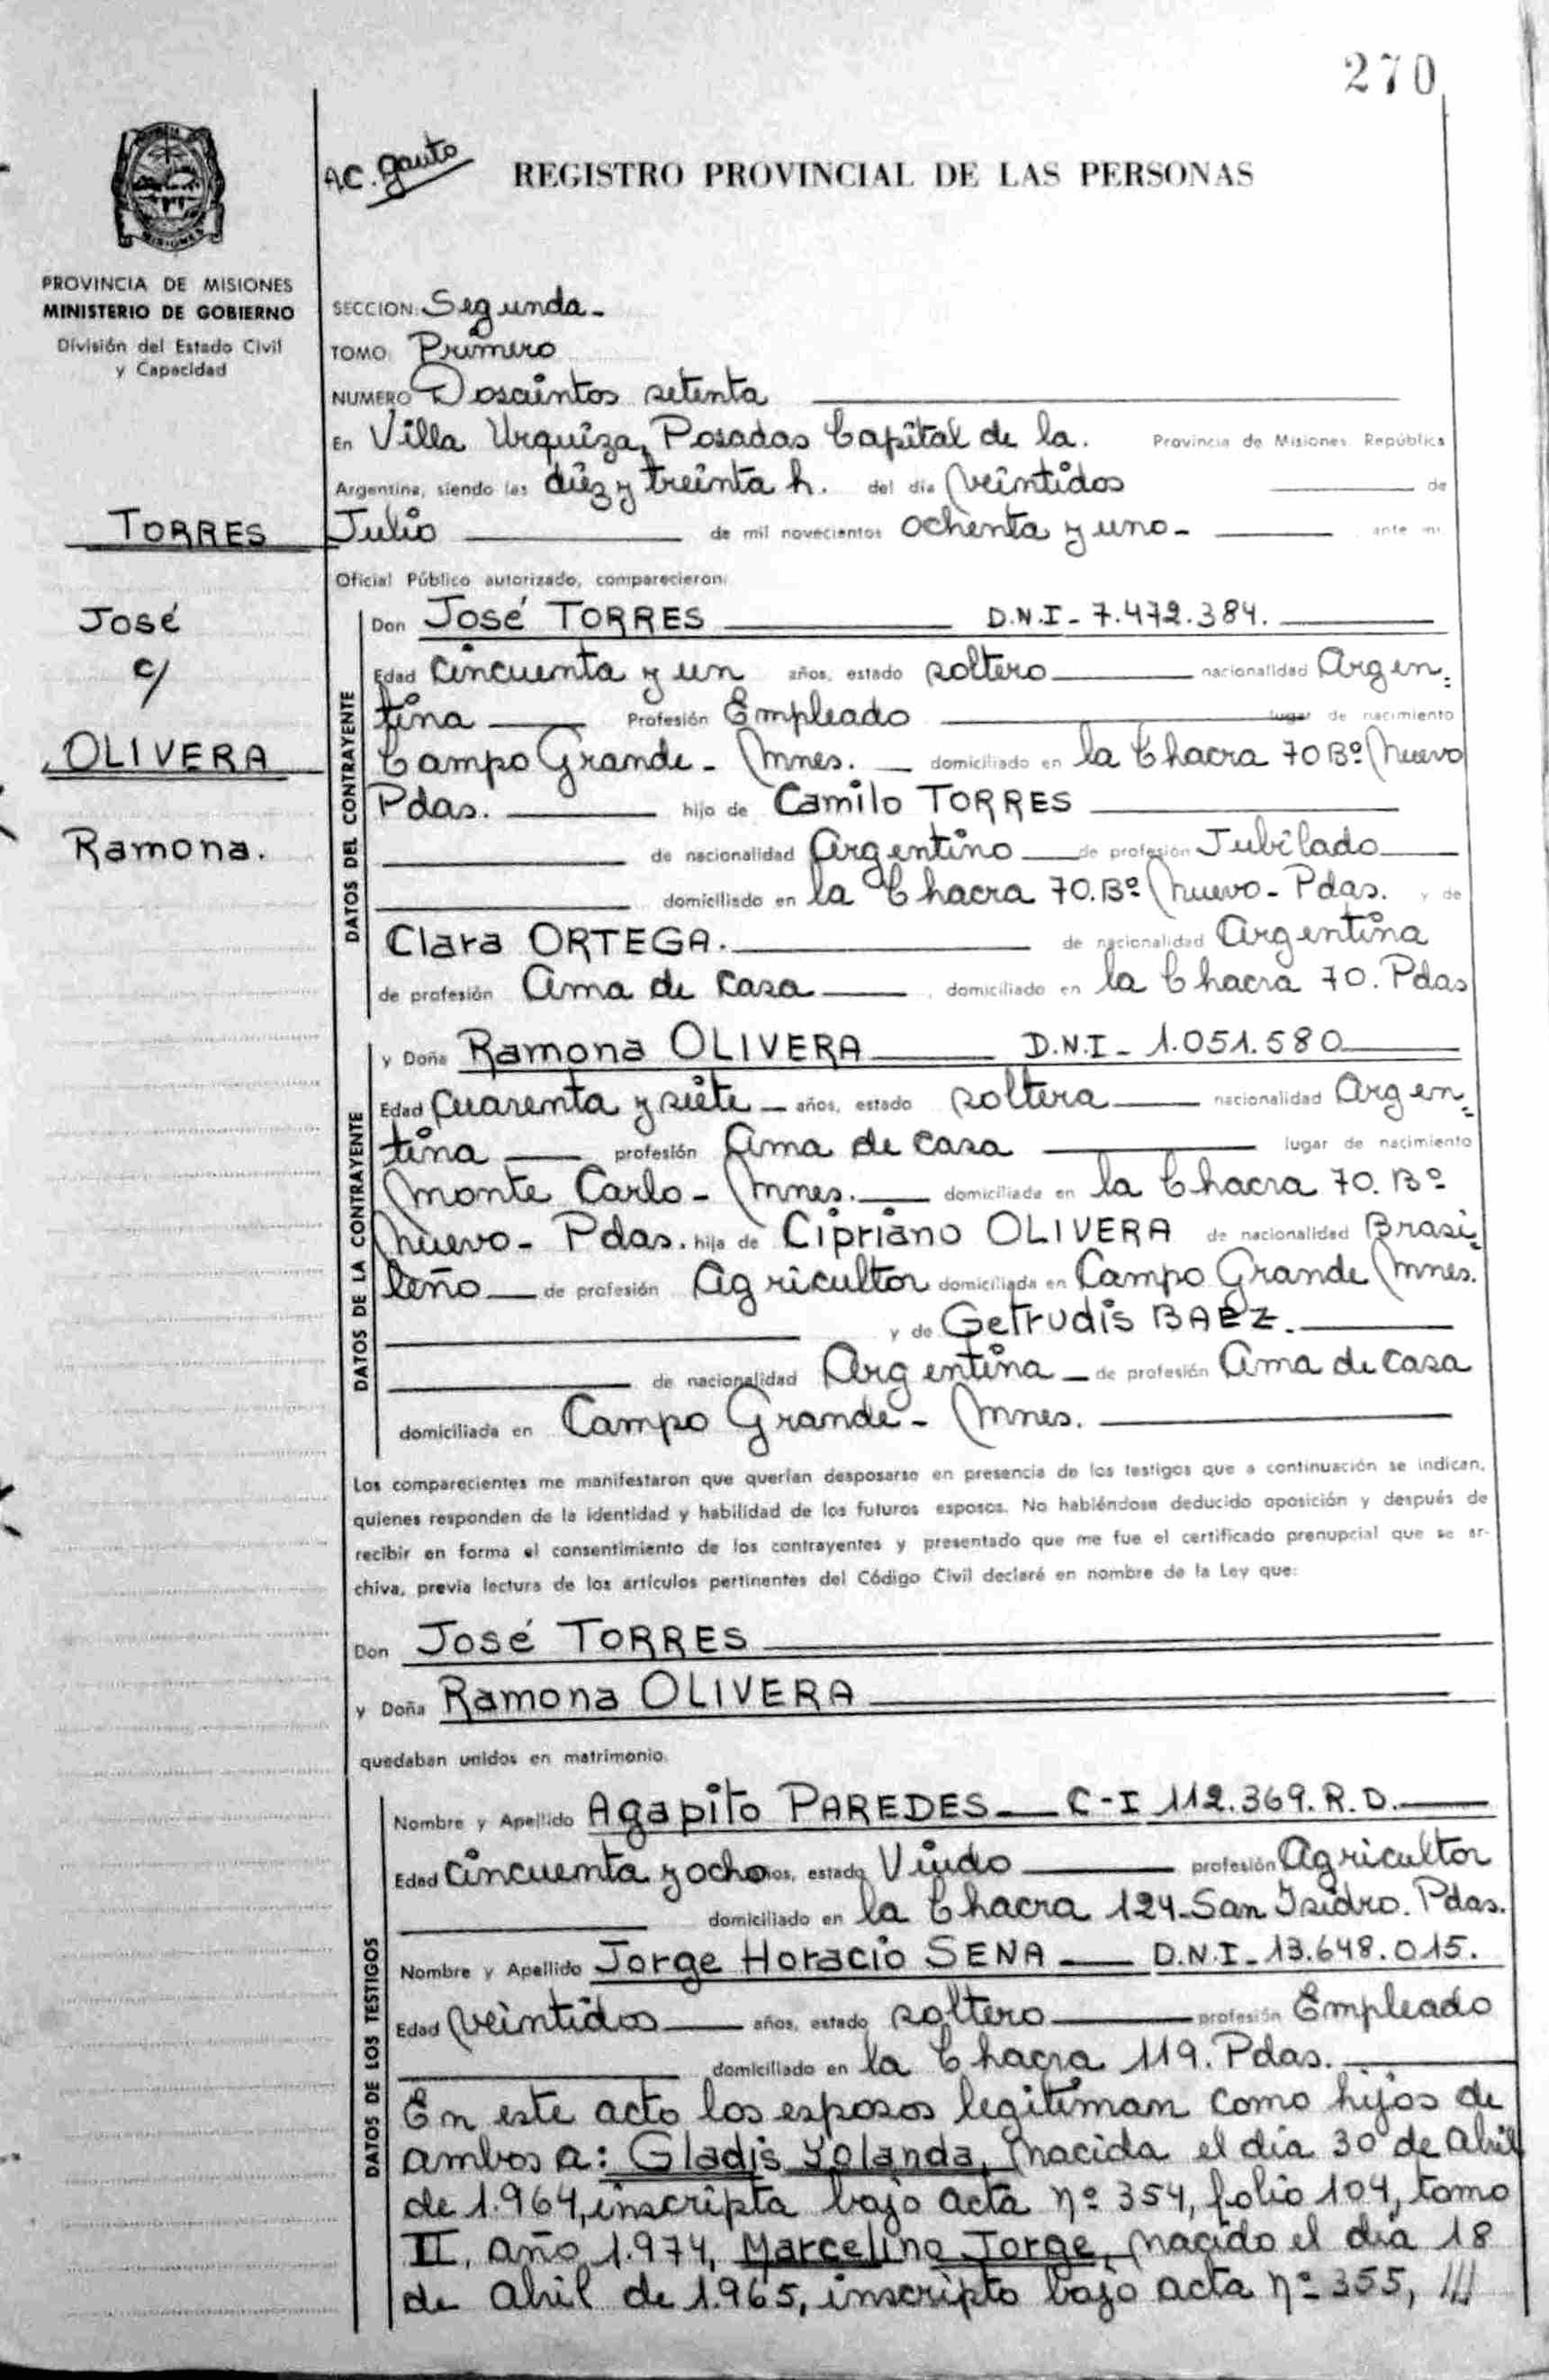 270
A.C. Gauto
REGISTRO PROVINCIAL DE LAS PERSONAS
MISIONES
PROVINCIA DE MISIONES
MINISTERIO DE GOBIERNO
División del Estado Civil
y Capacidad
TORRES
José
c/
OLIVERA
Ramona.
SECCION: Segunda-
TOMO Primero
NUMERO Doscientos setenta
En Villa Urquiza, Posadas Capital de la. Provincia de Misiones República
Argentina, siendo las diez y treinta h. del día veintidos de
Julio de mil novecientos ochenta y uno- ante mi
Oficial Público autorizado, comparecieron:
DATOS DEL CONTRAYENTE
Don José TORRES D.N.I- 7.472.384.
Edad cincuenta y un años, estado soltero nacionalidad Argen-
tina Profesión Empleado lugar de nacimiento
Campo Grande- Mnes. domiciliado en la Chacra 70 Bº Nuevo
Pdas. hijo de Camilo TORRES
de nacionalidad Argentino de profesión Jubilado
domiciliado en la Chacra 70.Bº Nuevo- Pdas. y de
Clara ORTEGA. de nacionalidad Argentina
de profesión Ama de casa domiciliado en la Chacra 70. Pdas
DATOS DE LA CONTRAYENTE
y Doña Ramona OLIVERA D.N.I- 1.051.580
Edad cuarenta y siete años, estado soltera nacionalidad Argen-
tina profesión Ama de casa lugar de nacimiento
Monte Carlo- Mnes. domiciliada en la Chacra 70. Bº
Nuevo- Pdas. hija de Cipriano OLIVERA de nacionalidad Brasi-
leño de profesión Agricultor domiciliada en Campo Grande Mnes.
y de Getrudis BAEZ.
de nacionalidad Argentina de profesión Ama de casa
domiciliada en Campo Grande- Mnes.
Los comparecientes me manifestaron que querían desposarse en presencia de los testigos que a continuación se indican,
quienes responden de la identidad y habilidad de los futuros esposos. No habiéndose deducido oposición y después de
recibir en forma el consentimiento de los contrayentes y presentado que me fue el certificado prenupcial que se ar-
chiva, previa lectura de los artículos pertinentes del Código Civil declaré en nombre de la Ley que:
Don José TORRES
y Doña Ramona OLIVERA
quedaban unidos en matrimonio.
DATOS DE LOS TESTIGOS
Nombre y Apellido Agapito PAREDES C-I 112.369.R.D.
Edad cincuenta y ocho años, estado Viudo profesión Agricultor
domiciliado en la Chacra 124-San Isidro. Pdas.
Nombre y Apellido Jorge Horacio SENA D.N.I- 13.648.015.
Edad veintidos años, estado soltero profesión Empleado
domiciliado en la Chacra 119. Pdas.
En este acto los esposos legitiman como hijos de
ambos a: Gladis Yolanda, nacida el día 30 de abril
de 1.964, inscripta bajo acta nº 354, folio 104, tomo
II, año 1.974, Marcelino Jorge, nacido el día 18
de abril de 1.965, inscripto bajo acta nº 355, ///